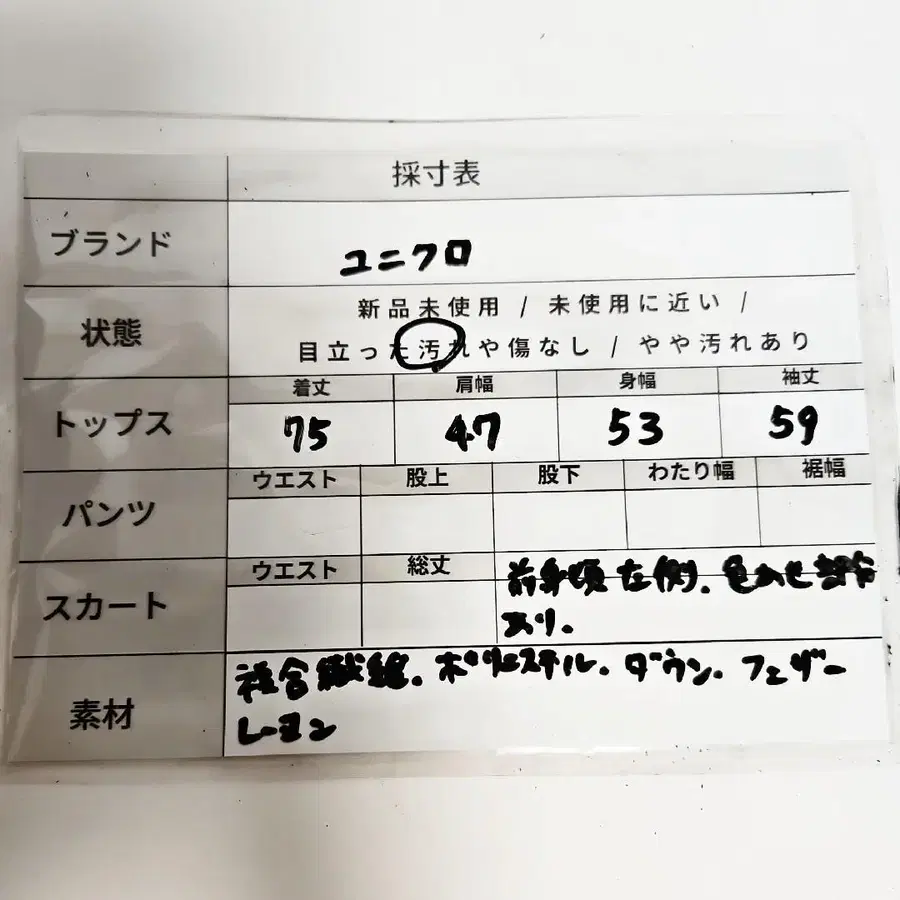 採寸表
ブランド
ユニクロ
状態
新品未使用 / 未使用に近い /
目立った汚れや傷なし / やや汚れあり
トップス
着丈 肩幅 身幅 袖丈
75 47 53 59
パンツ
ウエスト 股上 股下 わたり幅 裾幅
スカート
ウエスト 総丈
前身頃左側、色あせ部分
あり。
素材
複合繊維、ポリエステル、ダウン、フェザー
レーヨン